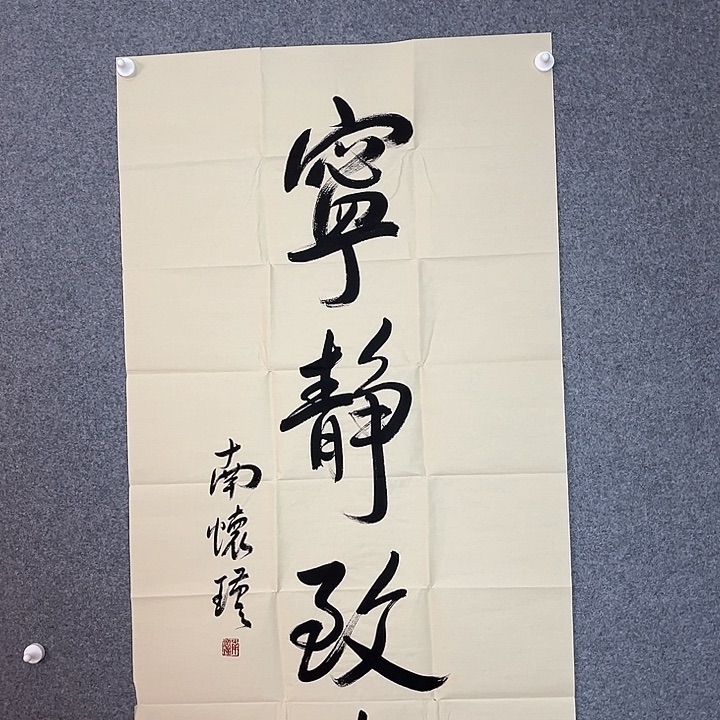 寧靜致
南懷瑾